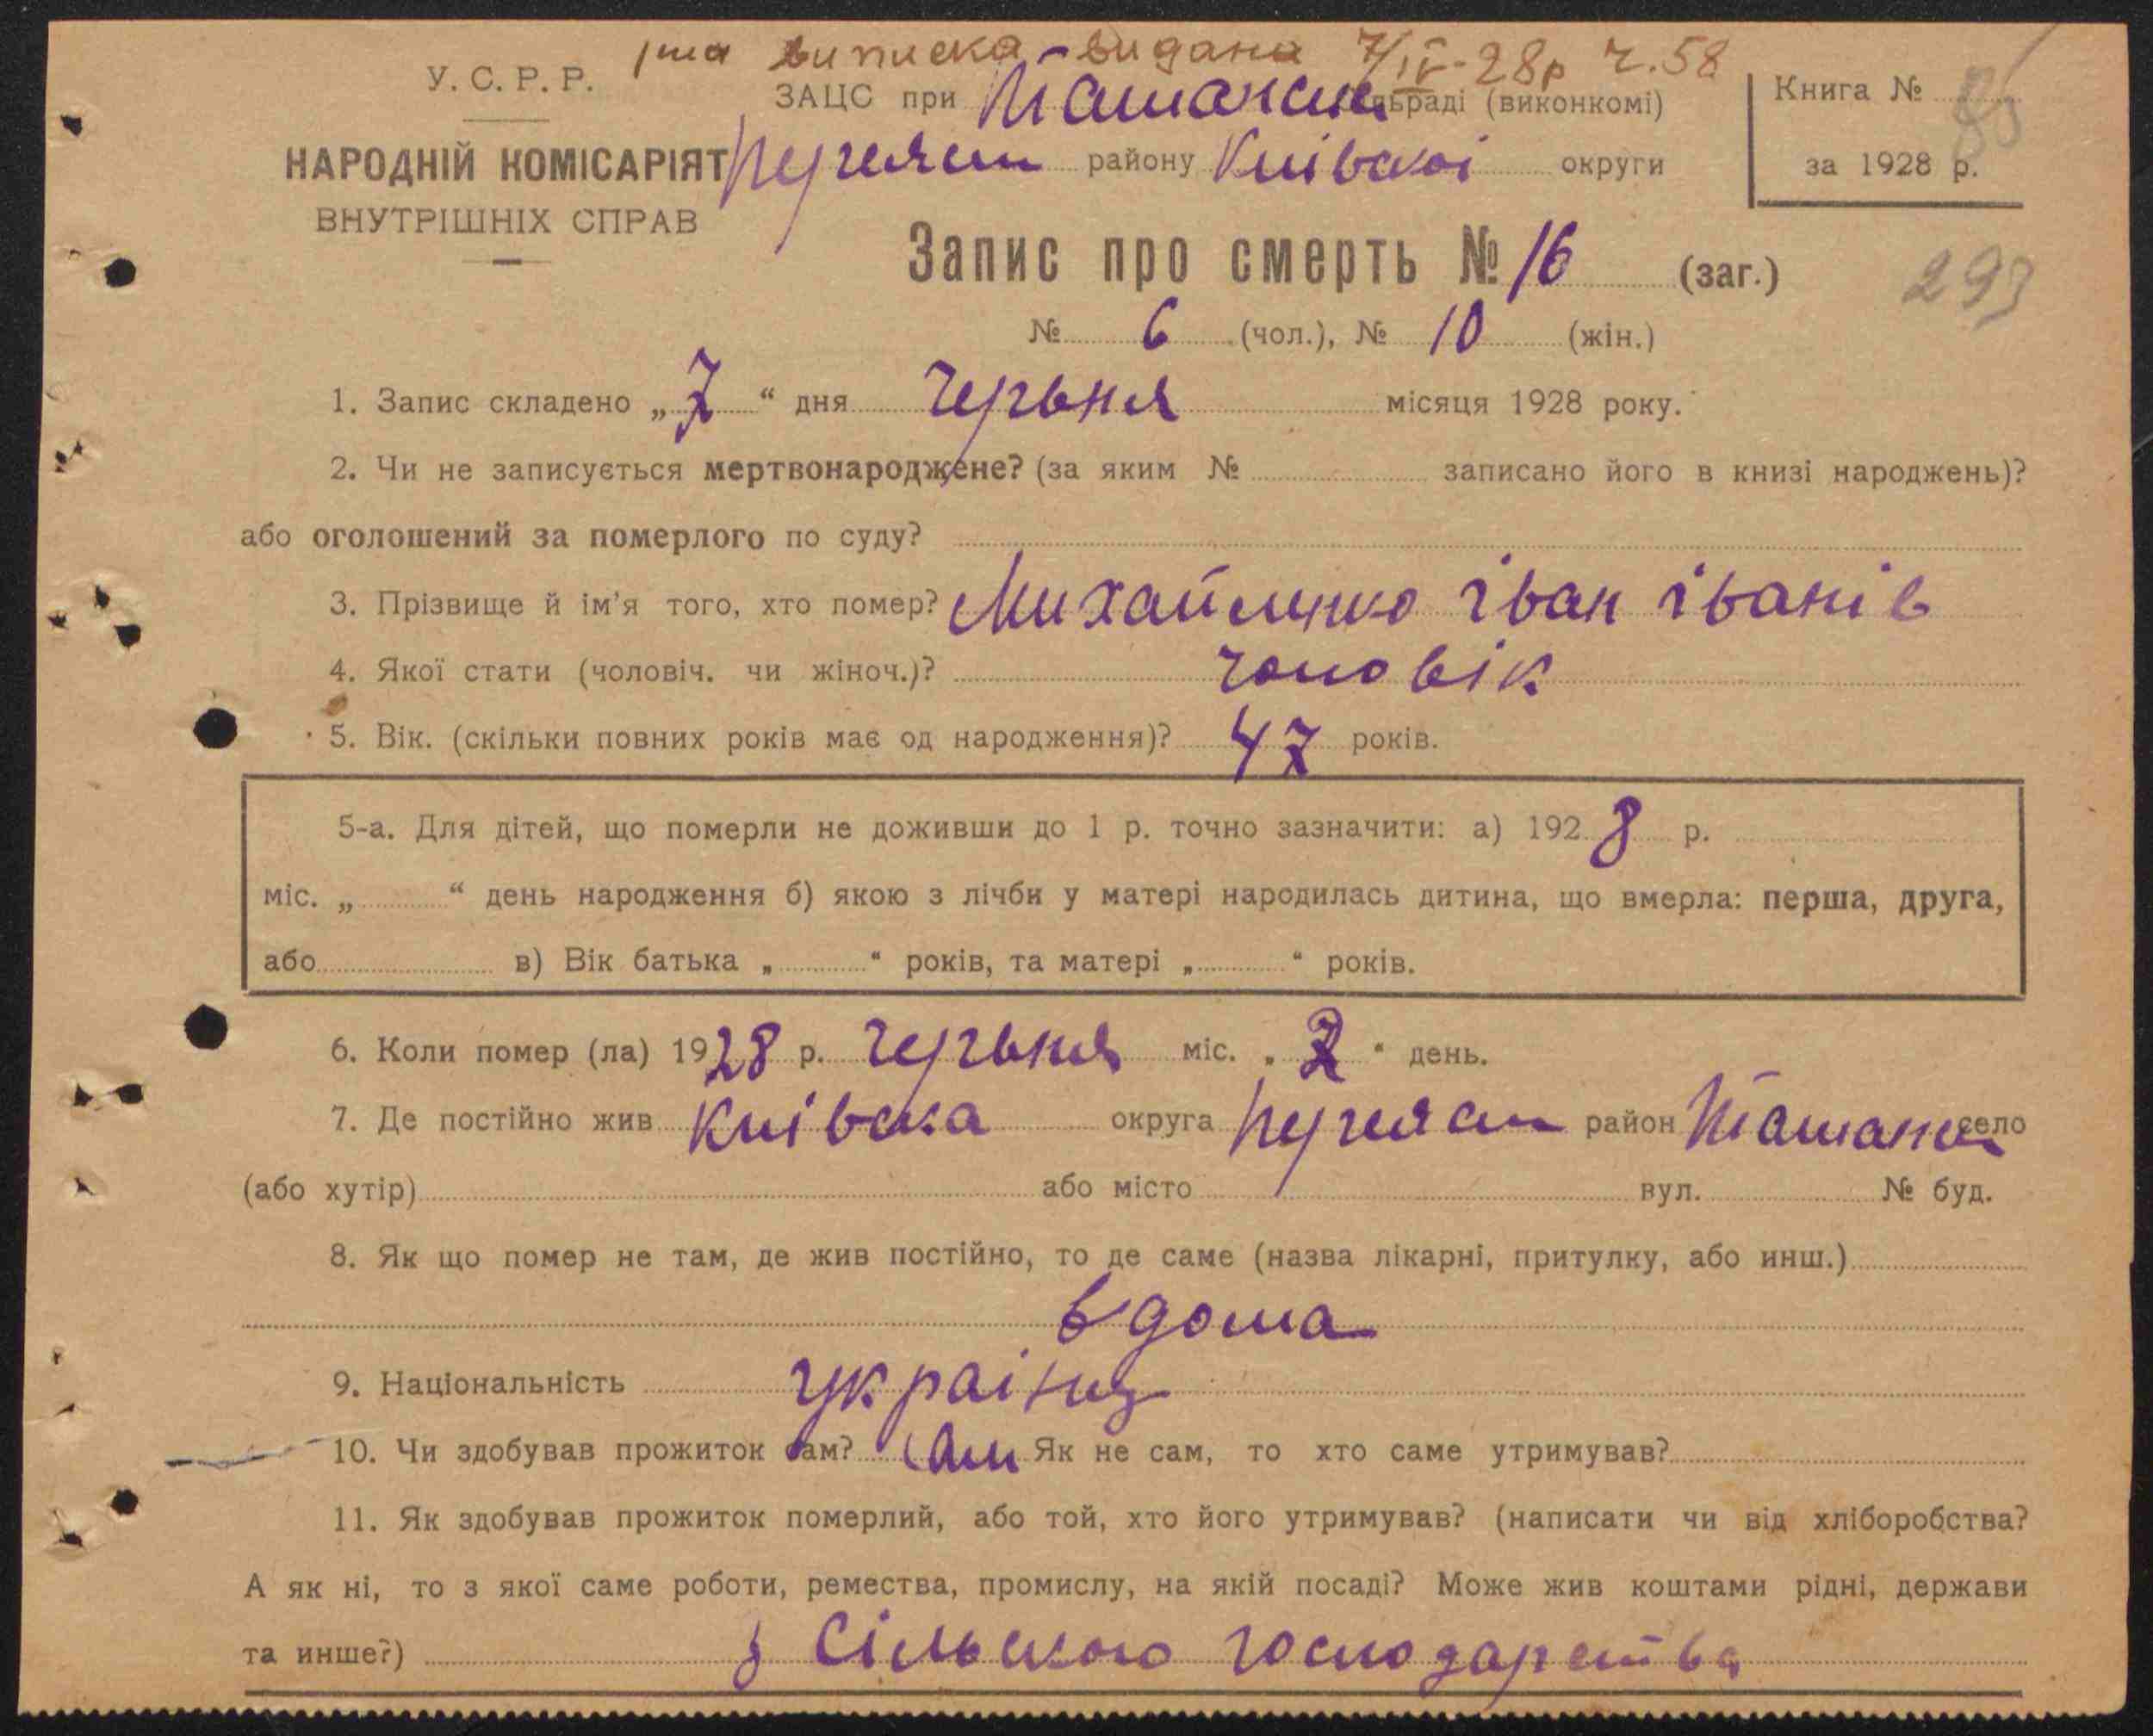 1ша виписка видана 7/IV-28р ч.58
У. С. Р. Р.
НАРОДНІЙ КОМІСАРІЯТ
ВНУТРІШНІХ СПРАВ
ЗАЦС при Ташанськ сільраді (виконкомі)
Переяслі району Київської округи
Книга №
за 1928 р.
Запис про смерть № 16 (заг.)
293
№ 6 (чол.), № 10 (жін.)
1. Запис складено „7“ дня Червня місяця 1928 року.
2. Чи не записується мертвонароджене? (за яким № записано його в книзі народжень)?
або оголошений за померлого по суду?
3. Прізвище й ім'я того, хто помер? Михайленко іван іванів
4. Якої стати (чоловіч. чи жіноч.)? Чоловік
5. Вік. (скільки повних років має од народження)? 47 років.
5-а. Для дітей, що померли не доживши до 1 р. точно зазначити: а) 1928 р.
міс. „ “ день народження б) якою з лічби у матері народилась дитина, що вмерла: перша, друга,
або в) Вік батька „ “ років, та матері „ “ років.
6. Коли помер (ла) 1928 р. Червня міс. „ “ день.
7. Де постійно жив Київська округа район Ташань село
(або хутір) або місто вул. № буд.
8. Як що помер не там, де жив постійно, то де саме (назва лікарні, притулку, або инш.)
вдома
9. Національність українц
10. Чи здобував прожиток сам? Сам Як не сам, то хто саме утримував?
11. Як здобував прожиток померлий, або той, хто його утримував? (написати чи від хліборобства?
А як ні, то з якої саме роботи, ремества, промислу, на якій посаді? Може жив коштами рідні, держави
та инше?) з Сільского господарства